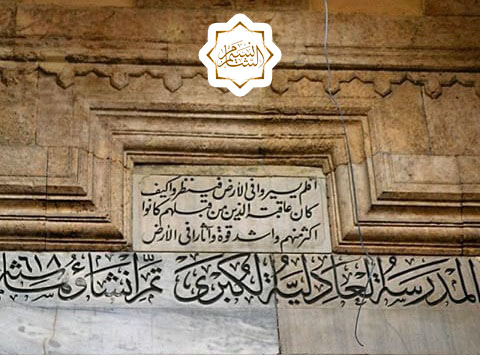 نسيم الشام
افلم يسيروا في الأرض فينظروا كيف
كان عاقبة الذين من قبلهم كانوا
اكثر منهم واشد قوة وآثارا في الأرض
المدرسة العادلية الكبرى تم إنشاؤها سنة ٦١٨